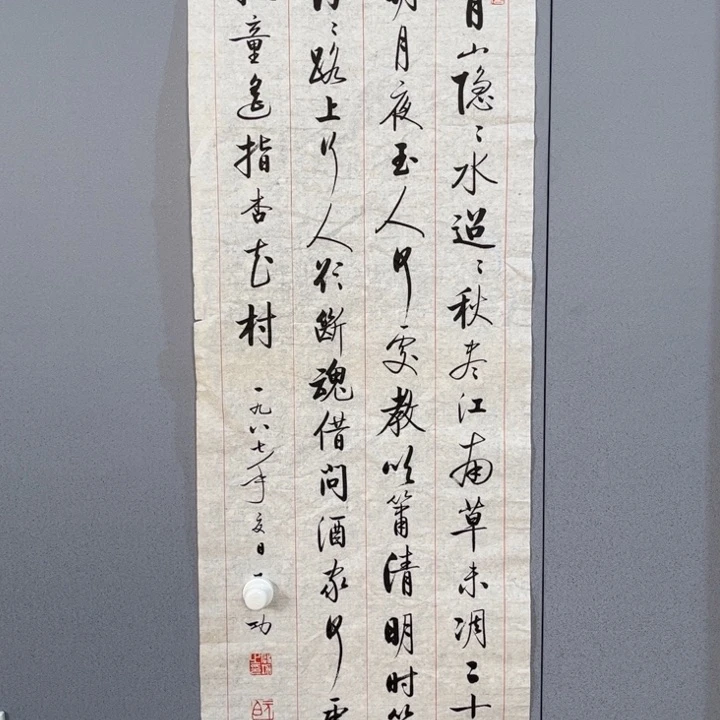 青山隐〻水迢〻秋尽江南草未凋二十
明月夜玉人何處教吹簫清明时
〻路上行人欲斷魂借問酒家何處
童遙指杏花村
一九八七年夏日
功